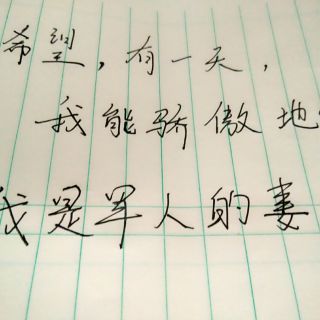 希望，有一天，
我能骄傲地
我是军人的妻